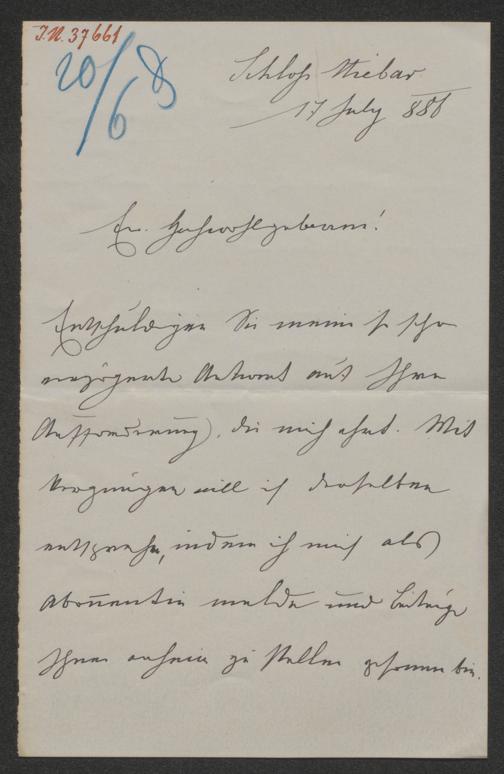 J.N. 37661
20/6 8
Schloss Stiebar
17 July 886
Ew. Hochwohlgeboren!
Entschuldigen Sie meine so sehr
verzögerte Antwort auf Ihre
Aufforderung, die mich ehrt. Mit
Vergnügen will ich derselben
entsprechen, indem ich mich als
Abonnentin melde und Beiträge
Ihnen anheim zu stellen gesonnen bin.